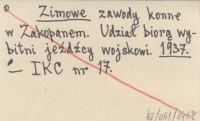 Zimowe zawody konne
w Zakopanem. Udział biorą wy-
bitni jeźdźcy wojskowi. 1937.
— IKC nr 17.